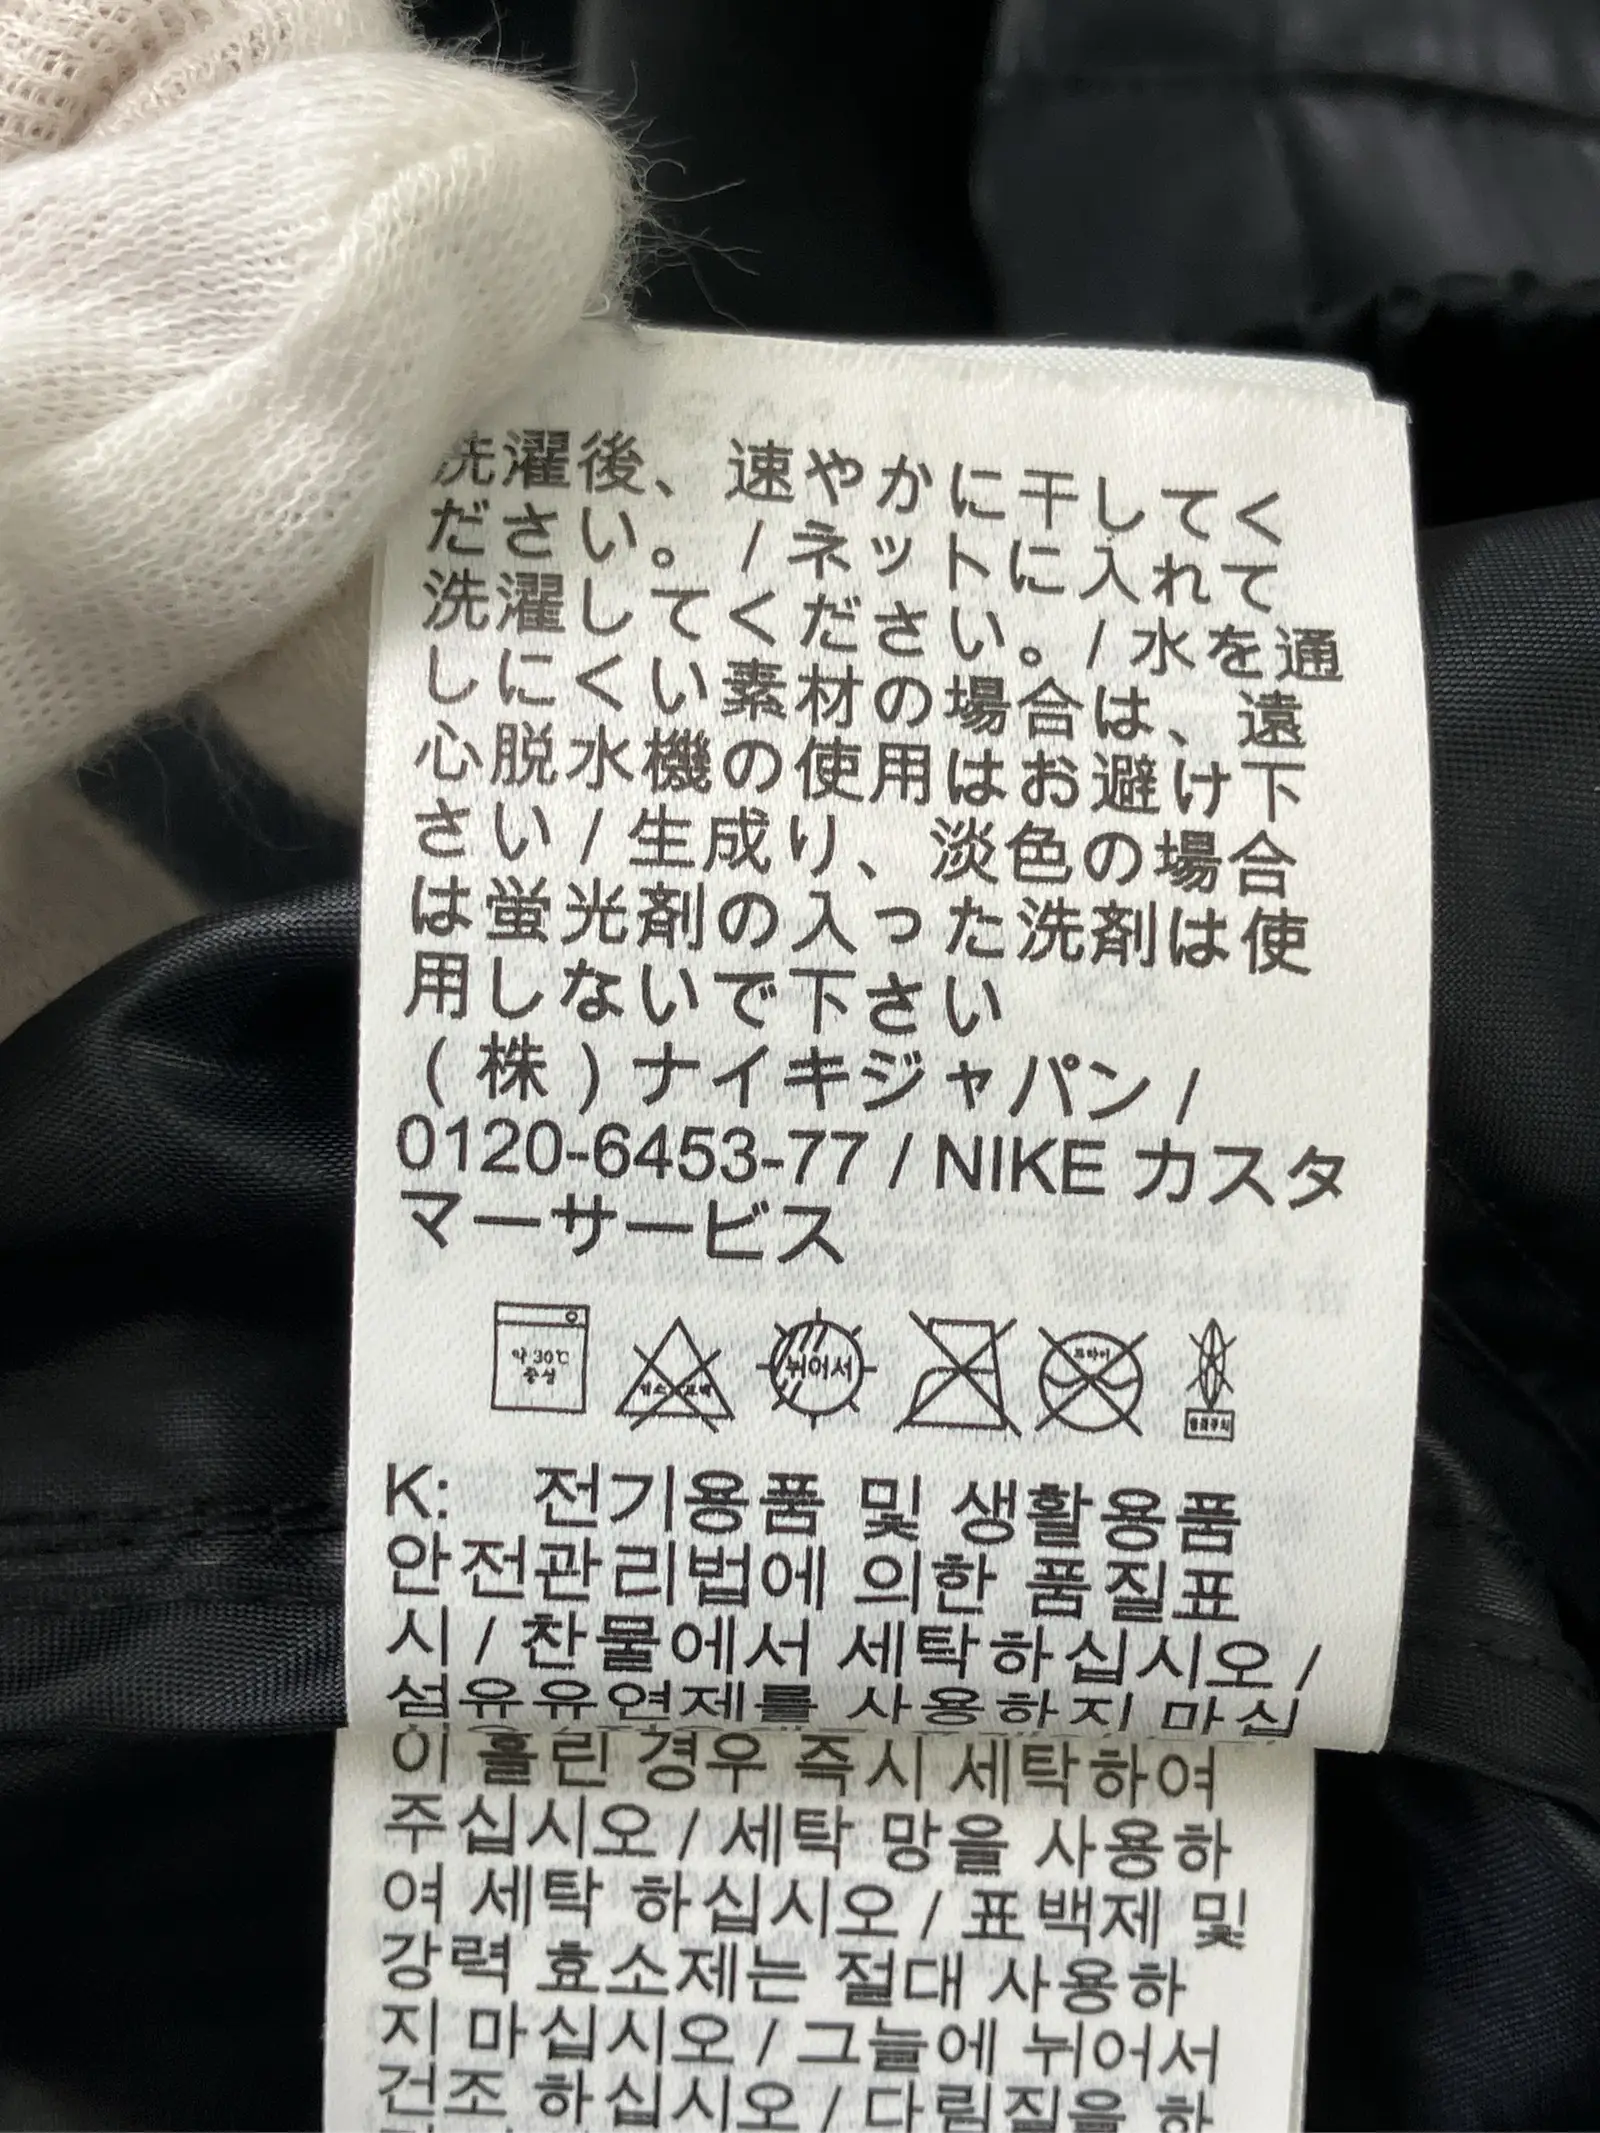 洗濯後、速やかに干してく
ださい。/ネットに入れて
洗濯してください。/水を通
しにくい素材の場合は、遠
心脱水機の使用はお避け下
さい/生成り、淡色の場合
は蛍光剤の入った洗剤は使
用しないで下さい
(株)ナイキジャパン/
0120-6453-77 / NIKE カスタ
マーサービス
약 30℃
중성
뉘어서
K: 전기용품 및 생활용품
안전관리법에 의한 품질표
시 / 찬물에서 세탁하십시오 /
섬유유연제를 사용하지 마십
이 흘린 경우 즉시 세탁하여
주십시오 / 세탁 망을 사용하
여 세탁 하십시오 / 표백제 및
강력 효소제는 절대 사용하
지 마십시오 / 그늘에 뉘어서
건조 하십시오 / 다림질을 하